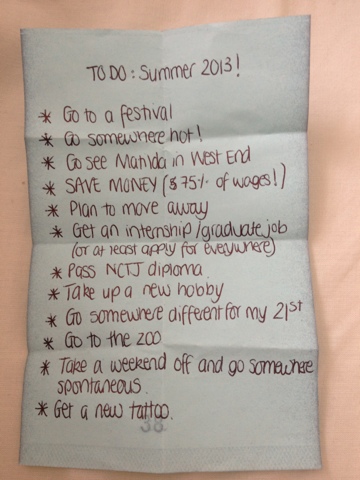 TO DO: Summer 2013!
* Go to a festival
* Go somewhere hot!
* Go see Matilda in West End
* SAVE MONEY ($75% of wages!)
* Plan to move away
* Get an internship/graduate job
(or at least apply for everywhere)
* Pass NCTJ diploma.
* Take up a new hobby
* Go somewhere different for my 21st
* Go to the zoo
* Take a weekend off and go somewhere
spontaneous.
* Get a new tattoo.
38